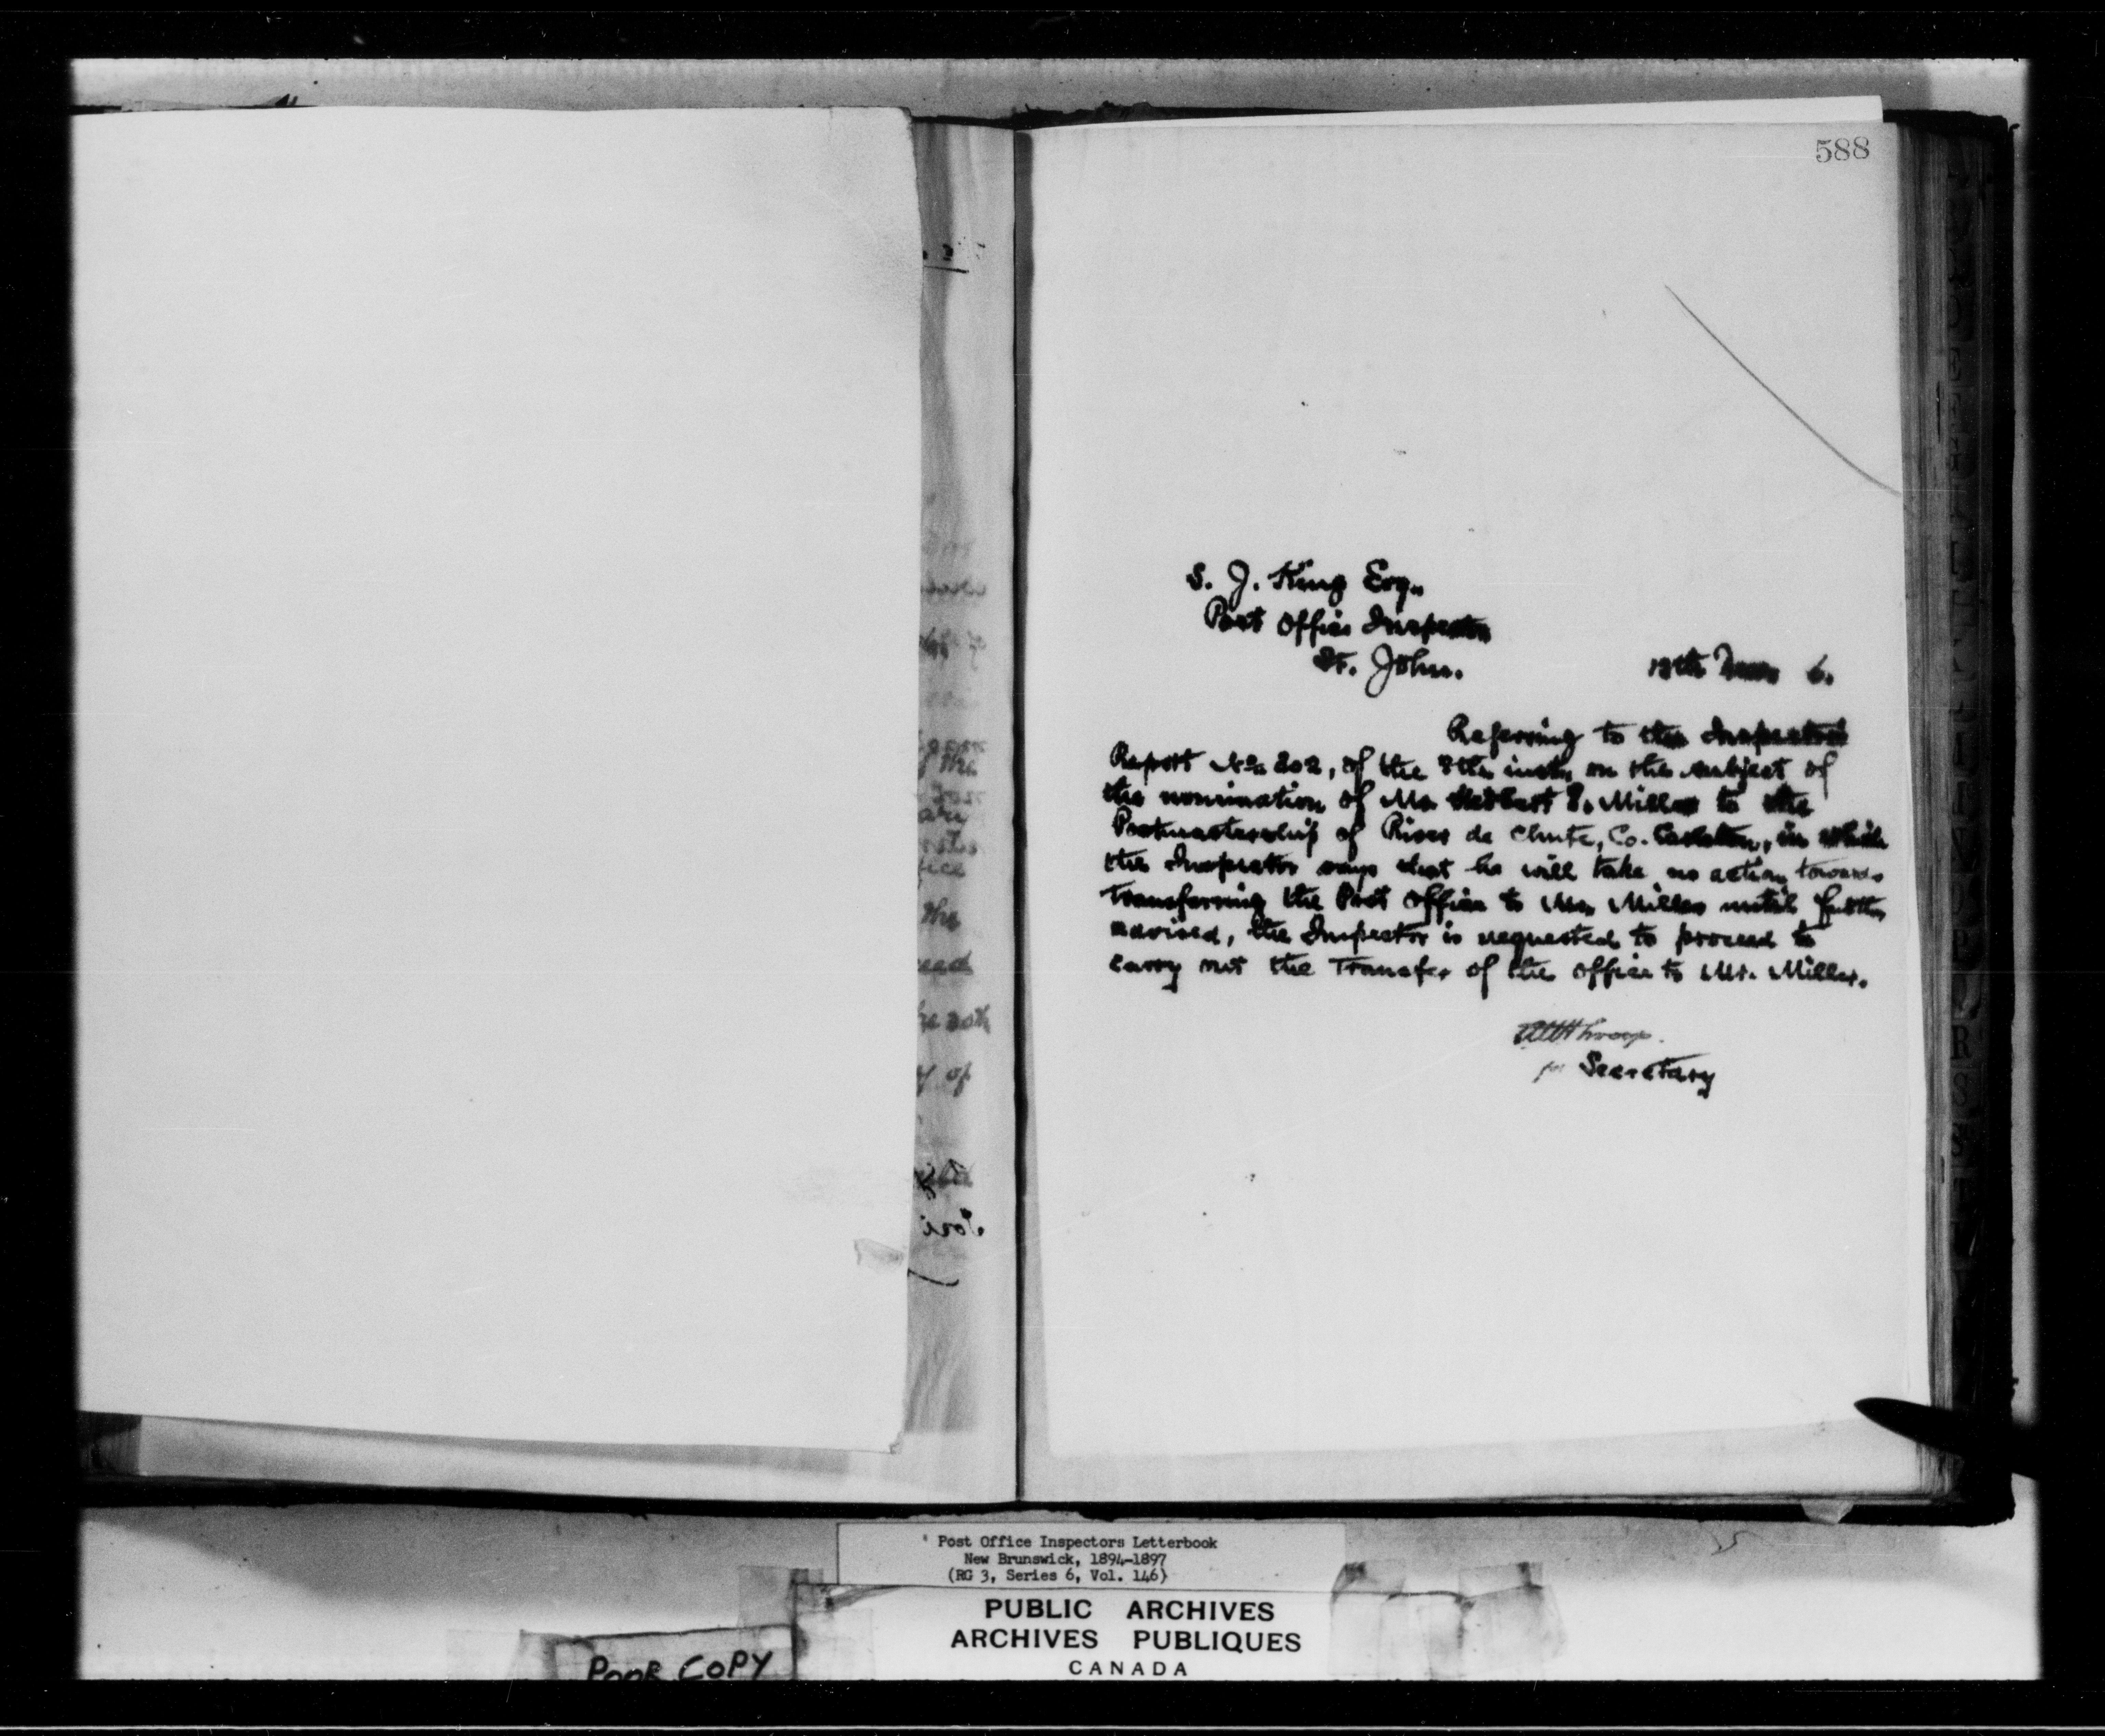 588
S. J. King Esq.,
Post Office Inspector
St. John.
6.
Referring to the Inspector's
Report No. 202, of the 8th inst, on the subject of
the nomination of Mr. Herbert Miller to the
Postmastership of River de Chute, Co. Carleton, in which
the Inspector says that he will take no action towards
transferring the Post Office to Mr. Miller until further
advised, the Inspector is requested to proceed to
carry out the Transfer of the office to Mr. Miller.
for Secretary
Post Office Inspectors Letterbook
New Brunswick, 1894-1897
(RG 3, Series 6, Vol. 146)
PUBLIC ARCHIVES
ARCHIVES PUBLIQUES
CANADA
POOR COPY